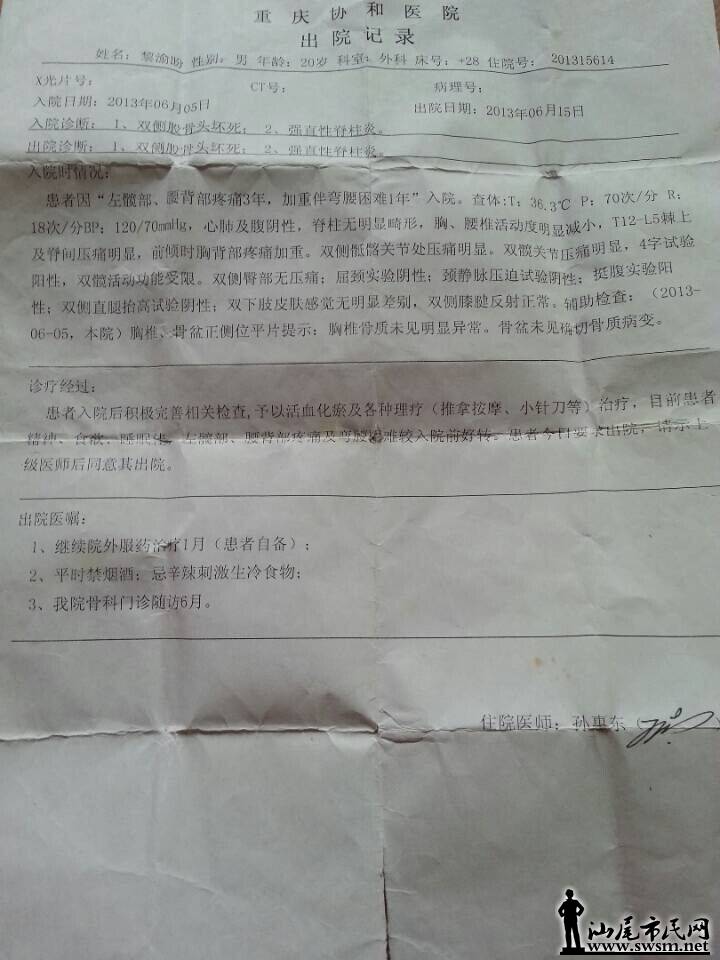 重庆协和医院
出院记录
姓名：黎渝盼 性别：男 年龄：20岁 科室：外科 床号：+28 住院号：201315614
X光片号： CT号： 病理号：
入院日期：2013年06月05日 出院日期：2013年06月15日
入院诊断：1、双侧股骨头坏死；2、强直性脊柱炎。
出院诊断：1、双侧股骨头坏死；2、强直性脊柱炎。
入院时情况：
患者因“左髋部、腰背部疼痛3年，加重伴弯腰困难1年”入院。查体:T：36.3℃ P：70次/分 R：
18次/分BP：120/70mmHg，心肺及腹阴性，脊柱无明显畸形，胸、腰椎活动度明显减小，T12-L5棘上
及脊间压痛明显，前倾时胸背部疼痛加重。双侧骶髂关节处压痛明显。双髋关节压痛明显，4字试验
阳性，双髋活动功能受限。双侧臀部无压痛；屈颈实验阴性；颈静脉压迫试验阴性；挺腹实验阳
性；双侧直腿抬高试验阴性；双下肢皮肤感觉无明显差别，双侧膝腱反射正常。辅助检查：（2013-
06-05，本院）胸椎、骨盆正侧位平片提示：胸椎骨质未见明显异常。骨盆未见确切骨质病变。
诊疗经过：
患者入院后积极完善相关检查,予以活血化瘀及各种理疗（推拿按摩、小针刀等）治疗，目前患者
精神、食欲、睡眠佳，左髋部、腰背部疼痛及弯腰困难较入院前好转。患者今日要求出院，请示上
级医师后同意其出院。
出院医嘱：
1、继续院外服药治疗1月（患者自备）；
2、平时禁烟酒；忌辛辣刺激生冷食物；
3、我院骨科门诊随访6月。
住院医师：孙惠东（
汕尾市民网
www.swsm.net